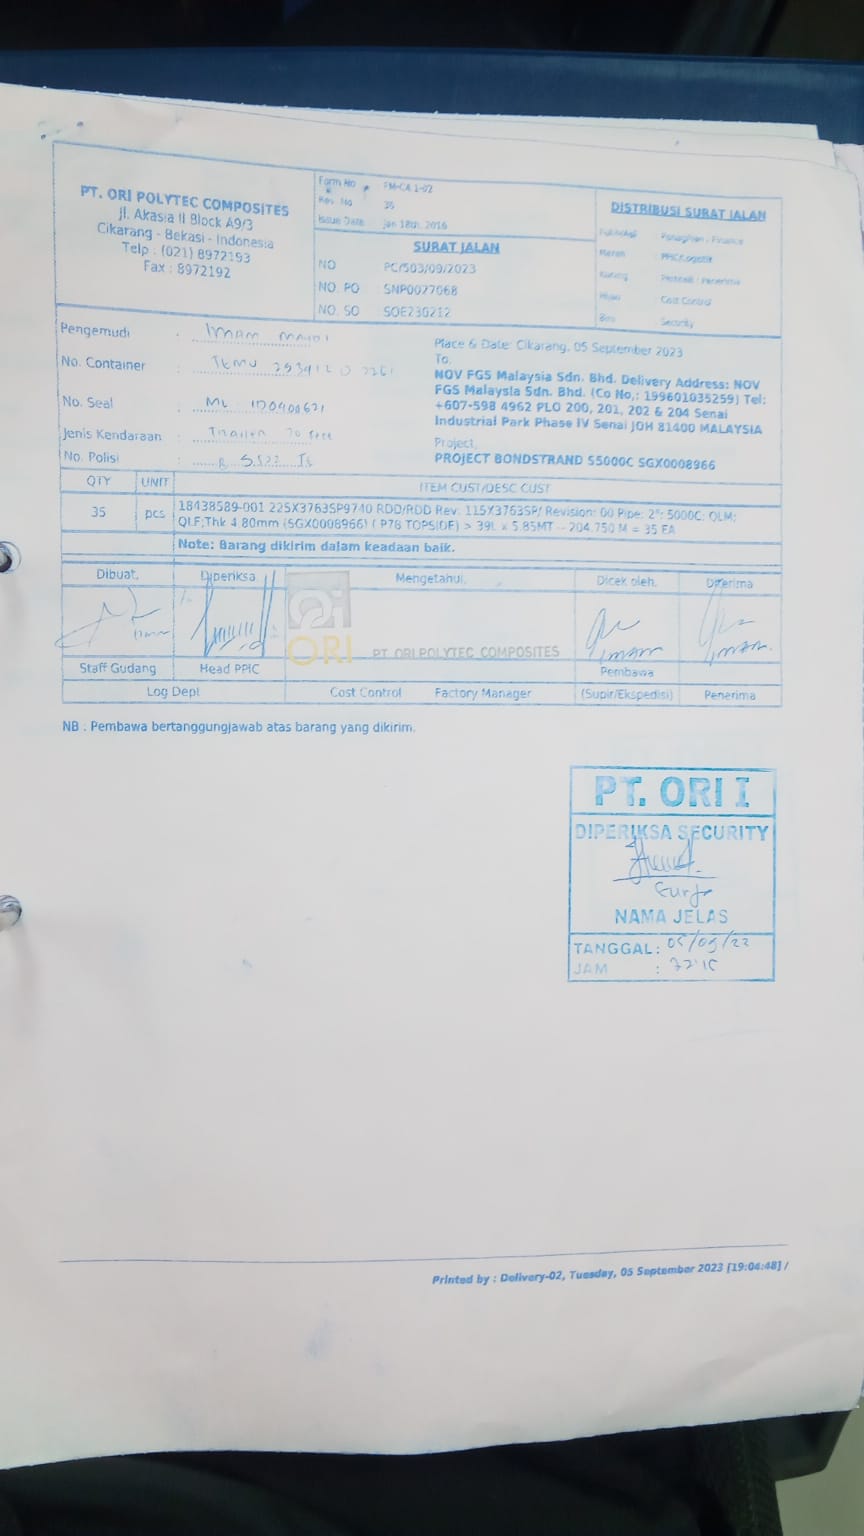 PT. ORI POLYTEC COMPOSITES
Jl. Akasia II Block A9/3
Cikarang - Bekasi - Indonesia
Telp : (021) 8972193
Fax : 8972192
Form No : FM-CA 1-02
Rev. No
Issue Date : Jan 18th, 2016
SURAT JALAN
NO PC/503/09/2023
NO. PO : SNP0027068
NO. SO : SOE230212
DISTRIBUSI SURAT JALAN
Penagihan : Finance
Merah : PPIC/Logistik
Kuning : Penerima
Hijau : Cost Control
Biru : Security
Pengemudi : Imam
No. Container :
No. Seal : ML
Jenis Kendaraan : Trailer 20 Feet
No. Polisi :
Place & Date: Cikarang, 05 September 2023
To,
NOV FGS Malaysia Sdn. Bhd. Delivery Address: NOV
FGS Malaysia Sdn. Bhd. (Co No,: 199601035259) Tel:
+607-598 4962 PLO 200, 201, 202 & 204 Senai
Industrial Park Phase IV Senai JOH 81400 MALAYSIA
Project,
PROJECT BONDSTRAND 55000C SGX0008966
QTY UNIT ITEM CUST/DESC CUST
35 pcs 18438589-001 225X3763SP9740 RDD/RDD Rev: 115X3763SP/ Revision: 00 Pipe: 2": 5000C: QLM;
QLF;Thk 4.80mm (SGX0008966) ( P78 TOPSIDE) > 39L x 5.85MT = 204.750 M = 35 EA
Note: Barang dikirim dalam keadaan baik.
Dibuat, Diperiksa Mengetahui, Dicek oleh, Diterima
ORI PT ORI POLYTEC COMPOSITES
Imam Imam
Staff Gudang Head PPIC Pembawa
Log Dept Cost Control Factory Manager (Supir/Ekspedisi) Penerima
NB : Pembawa bertanggungjawab atas barang yang dikirim.
PT. ORI I
DIPERIKSA SECURITY
NAMA JELAS
TANGGAL:
JAM :
Printed by : Delivery-02, Tuesday, 05 September 2023 [19:04:48] /